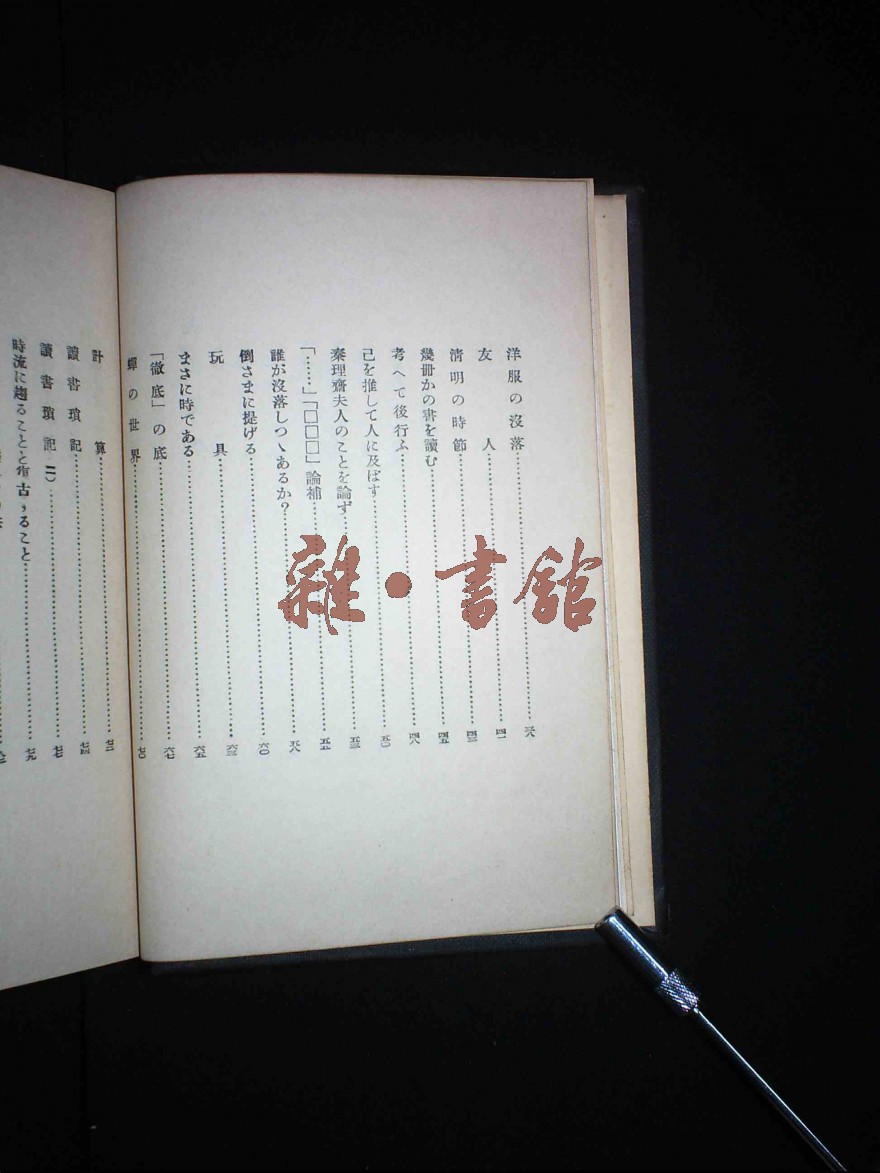 洋服の沒落……三八
友人……四一
淸明の時節……四三
幾冊かの書を讀む……四五
考へて後行ふ……四八
己を推して人に及ぼす……五〇
秦理齋夫人のことを論ず……五三
「……」「□□□」論補……五五
誰が沒落しつゝあるか?……五八
倒さまに提げる……六〇
玩具……六三
まさに時である……六五
「徹底」の底……六七
蟬の世界……七〇
計算……七三
讀書瑣記……七四
讀書瑣記(二)……七七
時流に趨ることと復古すること……七九
雜•書館